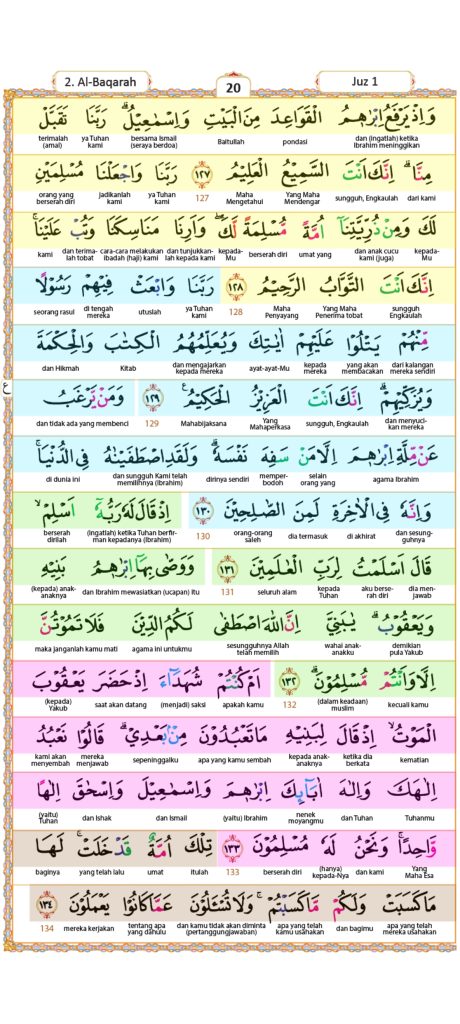 2. Al-Baqarah
20
Juz 1
وَاِذْ يَرْفَعُ اِبْرٰهٖمُ الْقَوَاعِدَ مِنَ الْبَيْتِ وَاِسْمٰعِيْلُۗ رَبَّنَا تَقَبَّلْ
dan (ingatlah) ketika Ibrahim meninggikan pondasi Baitullah bersama Ismail (seraya berdoa) ya Tuhan kami terimalah (amal)
مِنَّاۗ اِنَّكَ اَنْتَ السَّمِيْعُ الْعَلِيْمُ ١٢٧ رَبَّنَا وَاجْعَلْنَا مُسْلِمَيْنِ
dari kami sungguh, Engkaulah Yang Maha Mendengar Maha Mengetahui 127 ya Tuhan kami jadikanlah kami orang yang berserah diri
لَكَ وَمِنْ ذُرِّيَّتِنَآ اُمَّةً مُّسْلِمَةً لَّكَۖ وَاَرِنَا مَنَاسِكَنَا وَتُبْ عَلَيْنَاۚ
kepada-Mu dan anak cucu kami (juga) umat yang berserah diri kepada-Mu dan tunjukkan-lah kepada kami cara-cara melakukan ibadah (haji) kami dan terima-lah tobat kami
اِنَّكَ اَنْتَ التَّوَّابُ الرَّحِيْمُ ١٢٨ رَبَّنَا وَابْعَثْ فِيْهِمْ رَسُوْلًا
sungguh Engkaulah Yang Maha Penerima tobat Maha Penyayang 128 ya Tuhan kami utuslah di tengah mereka seorang rasul
مِّنْهُمْ يَتْلُوْا عَلَيْهِمْ اٰيٰتِكَ وَيُعَلِّمُهُمُ الْكِتٰبَ وَالْحِكْمَةَ
dari kalangan mereka sendiri yang akan membacakan kepada mereka ayat-ayat-Mu dan mengajarkan kepada mereka Kitab dan Hikmah
وَيُزَكِّيْهِمْۗ اِنَّكَ اَنْتَ الْعَزِيْزُ الْحَكِيْمُ ࣖ ١٢٩ وَمَنْ يَّرْغَبُ
dan menyuci-kan mereka sungguh, Engkaulah Yang Mahaperkasa Mahabijaksana 129 dan tidak ada yang membenci
ع
عَنْ مِّلَّةِ اِبْرٰهٖمَ اِلَّا مَنْ سَفِهَ نَفْسَهٗۗ وَلَقَدِ اصْطَفَيْنٰهُ فِى الدُّنْيَاۚ
agama Ibrahim selain orang yang memper-bodoh dirinya sendiri dan sungguh Kami telah memilihnya (Ibrahim) di dunia ini
وَاِنَّهٗ فِى الْاٰخِرَةِ لَمِنَ الصّٰلِحِيْنَ ١٣٠ اِذْ قَالَ لَهٗ رَبُّهٗٓ اَسْلِمْۙ
dan sesung-guhnya di akhirat dia termasuk orang-orang saleh 130 (ingatlah) ketika Tuhan berfir-man kepadanya (Ibrahim) berserah dirilah
قَالَ اَسْلَمْتُ لِرَبِّ الْعٰلَمِيْنَ ١٣١ وَوَصّٰى بِهَآ اِبْرٰهٖمُ بَنِيْهِ
dia men-jawab aku berse-rah diri kepada Tuhan seluruh alam 131 dan Ibrahim mewasiatkan (ucapan) itu (kepada) anak-anaknya
وَيَعْقُوْبُۗ يٰبَنِيَّ اِنَّ اللّٰهَ اصْطَفٰى لَكُمُ الدِّيْنَ فَلَا تَمُوْتُنَّ
demikian pula Yakub wahai anak-anakku sesungguhnya Allah telah memilih agama ini untukmu maka janganlah kamu mati
اِلَّا وَاَنْتُمْ مُّسْلِمُوْنَۗ ١٣٢ اَمْ كُنْتُمْ شُهَدَاۤءَ اِذْ حَضَرَ يَعْقُوْبَ
kecuali kamu (dalam keadaan) muslim 132 apakah kamu (menjadi) saksi saat akan datang (kepada) Yakub
الْمَوْتُۙ اِذْ قَالَ لِبَنِيْهِ مَا تَعْبُدُوْنَ مِنْۢ بَعْدِيْۗ قَالُوْا نَعْبُدُ
kematian ketika dia berkata kepada anak-anaknya apa yang kamu sembah sepeninggalku mereka menjawab kami akan menyembah
اِلٰهَكَ وَاِلٰهَ اٰبَاۤىِٕكَ اِبْرٰهٖمَ وَاِسْمٰعِيْلَ وَاِسْحٰقَ اِلٰهًا
Tuhanmu dan Tuhan nenek moyangmu (yaitu) Ibrahim dan Ismail dan Ishak (yaitu) Tuhan
وَّاحِدًاۚ وَنَحْنُ لَهٗ مُسْلِمُوْنَ ١٣٣ تِلْكَ اُمَّةٌ قَدْ خَلَتْۚ لَهَا
Yang Maha Esa dan kami (hanya) kepada-Nya berserah diri 133 itulah umat yang telah lalu baginya
مَا كَسَبَتْ وَلَكُمْ مَّا كَسَبْتُمْۚ وَلَا تُسْـَٔلُوْنَ عَمَّا كَانُوْا يَعْمَلُوْنَ ١٣٤
apa yang telah mereka usahakan dan bagimu apa yang telah kamu usahakan dan kamu tidak akan diminta (pertanggungjawaban) tentang apa yang dahulu mereka kerjakan 134